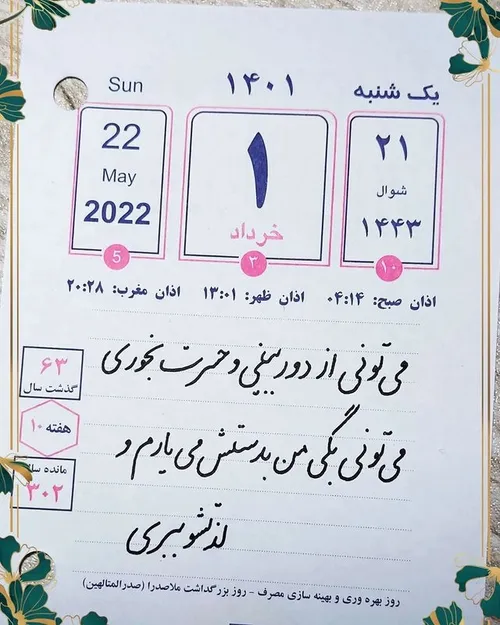 یک شنبه ۱۴۰۱ Sun
۲۱ شوال ۱۴۴۳
۱۰
۱
خرداد
۳
22
May
2022
5
اذان صبح: ۰۴:۱۴ اذان ظهر: ۱۳:۰۱ اذان مغرب: ۲۰:۲۸
می تونی از دور ببینی و حسرت بخوری
می تونی بگی من بدستش می یارم و
لذتشو ببری
۶۳
گذشت سال
هفته ۱۰
مانده سال
۳۰۲
روز بهره وری و بهینه سازی مصرف - روز بزرگداشت ملاصدرا (صدرالمتالهین)